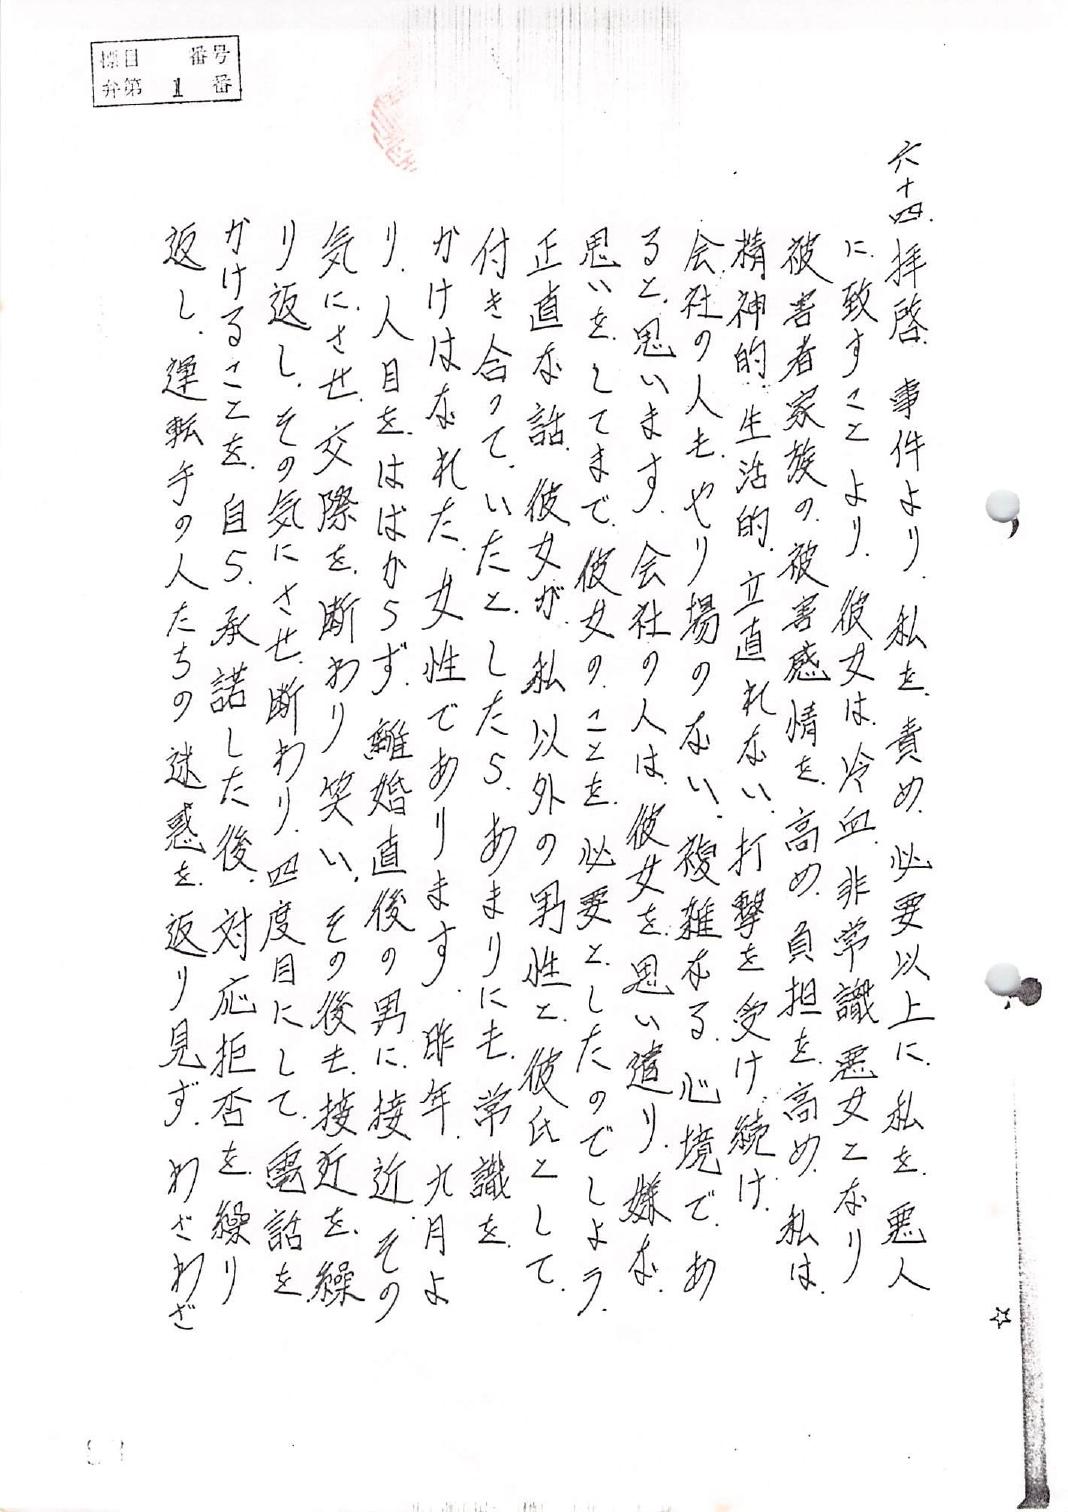 標目 番号
弁第 1 番
六十四.拝啓.事件より.私を.責め.必要以上に.私を.悪人
に.致すことより.彼女は.冷血.非常識.悪女となり
被害者家族の.被害感情を.高め.負担を.高め.私は.
精神的.生活的.立直れない.打撃を受け.続け.
会社の人も.やり場のない.複雑なる.心境で.あ
ると.思います.会社の人は.彼女を.思い遣り.嫌な.
思いをしてまで.彼女のことを.必要と.したのでしょう.
正直な話.彼女が.私以外の男性と.彼氏として.
付き合って.いたと.したら.あまりにも.常識を.
かけはなれた.女性であります.昨年.九月よ
り.人目を.はばからず.離婚直後の男に.接近.その
気に.させ.交際を.断わり笑い.その後も.接近を.繰
り返し.その気にさせ.断わり.四度目にして.電話を.
かけることを.自ら.承諾した後.対応拒否を.繰り
返し.運転手の人たちの迷惑を.返り見ず.わざわざ
☆